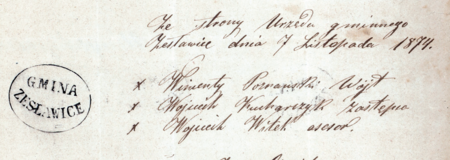 Ze strony Urzędu gminnego
Zesławice dnia 7 Listopada 1874.
GMINA
ZESŁAWICE
x Wincenty Poznański Wójt
x Wojciech Kucharczyk Zastępca
x Wojciech Witek asesor.